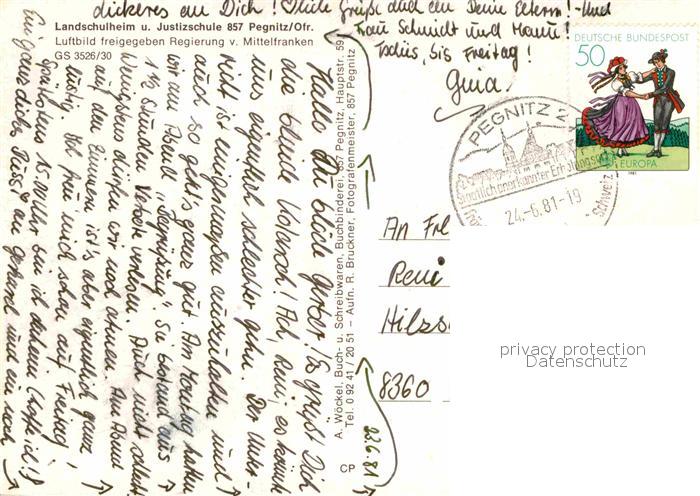 Landschulheim u. Justizschule 857 Pegnitz/Ofr.
Luftbild freigegeben Regierung v. Mittelfranken
GS 3526/30
22.6.81
Hallo Du blöde Gerber! Es grüßt Dich
die blinde
uns eigentlich schlechter gehn. Der Unter-
richt ist einigermaßen auszuhalten und
auch so geht's ganz gut. Am Montag hatten
wir am Abend "Tagesprüfung". Sie bestand aus
1½ Stunden
Wenigstens dürfen wir noch atmen. Am Abend
auf den Zimmern ist's aber eigentlich ganz
lustig. Ich freu mich schon auf Freitag!
Spätestens 15.00 Uhr bin ich daheim (hoffentlich)!
Ein ganz dickes Bussi
und ein noch
dickeres an Dich! Viele Grüße auch an Deine Eltern! Und
Frau Schmidt und Manu!
Tschüs, bis Freitag!
Guia.
A. Wöckel, Buch- u. Schreibwaren, Buchbinderei, 857 Pegnitz, Hauptstr. 59
Tel. 0 92 41 / 20 51 – Aufn. R. Bruckner, Fotografenmeister, 857 Pegnitz
CP
DEUTSCHE BUNDESPOST
50
EUROPA
1981
PEGNITZ 2
Staatlich anerkannter Erholungsort
24.-6.81-19
Schweiz
An Frl
Reni
Hilzs
8360
privacy protection
Datenschutz